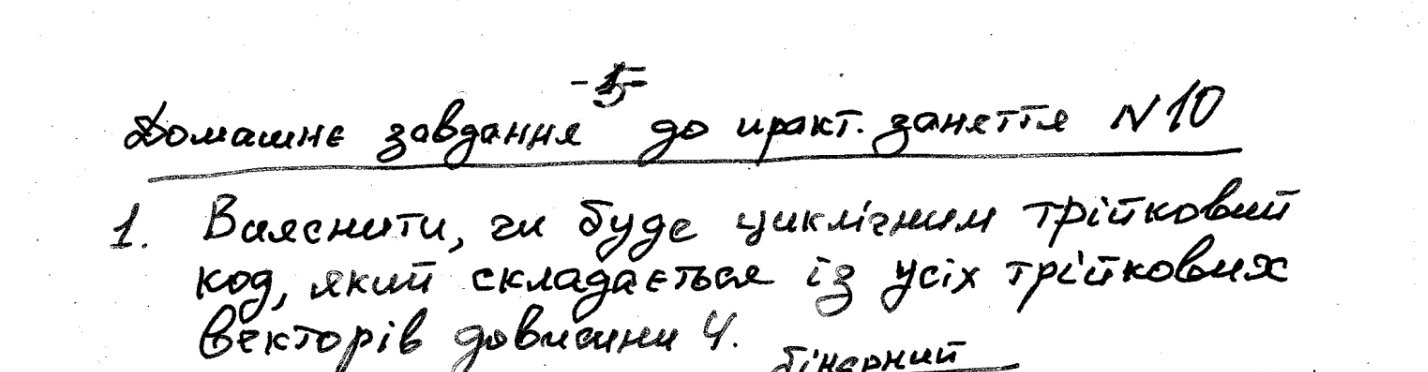 Домашнє завдання до практ. заняття №10
1. Вияснити, чи буде циклічним трійковий
код, який складається із усіх трійкових
векторів довжини 4.
бінарний